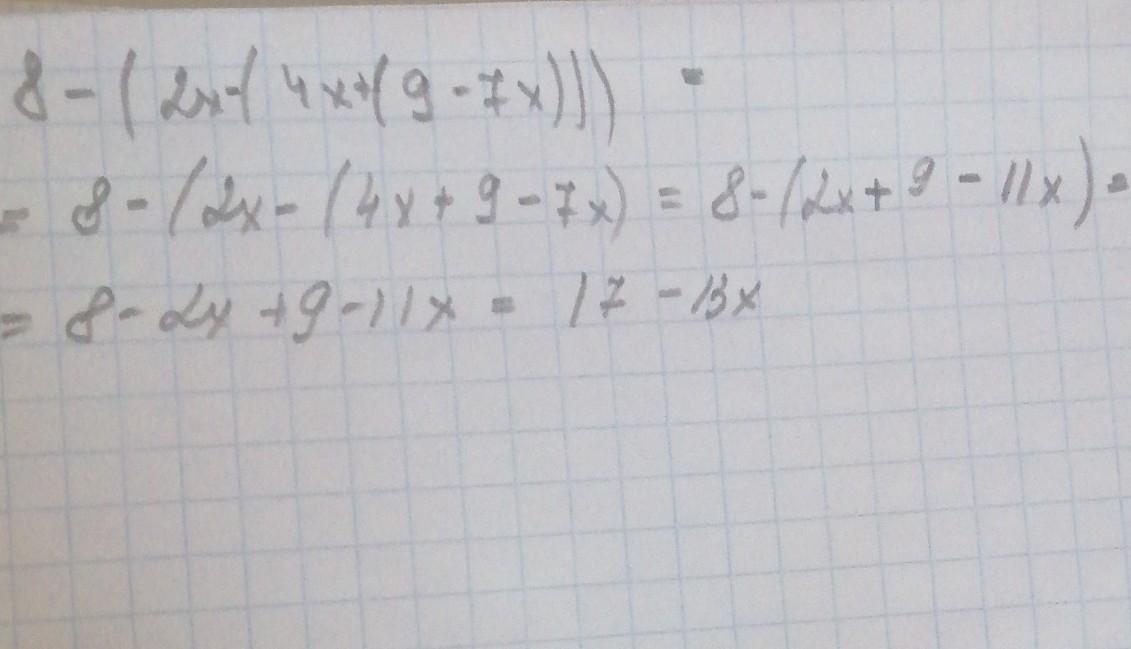 8 - (2x-(4x+(9-7x))) =
= 8 - (2x - (4x + 9 - 7x) = 8 - (2x + 9 - 11x) =
= 8 - 2x + 9 - 11x = 17 - 13x